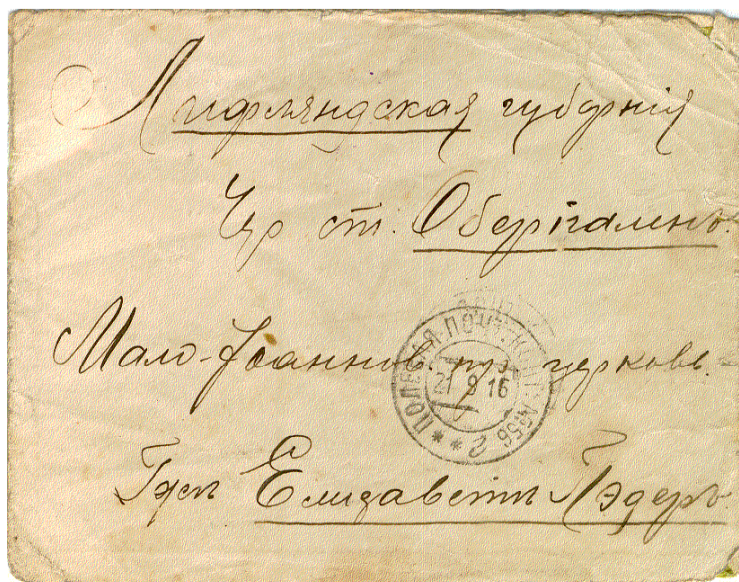 Лифляндская губернія
Чер ст. Оберпаленъ.
Мало-Іоаннов. пр. церковь.
ПОЛЕВАЯ ПОЧТ.
21 9 16
Гжѣ Елизаветѣ Пэдеръ.